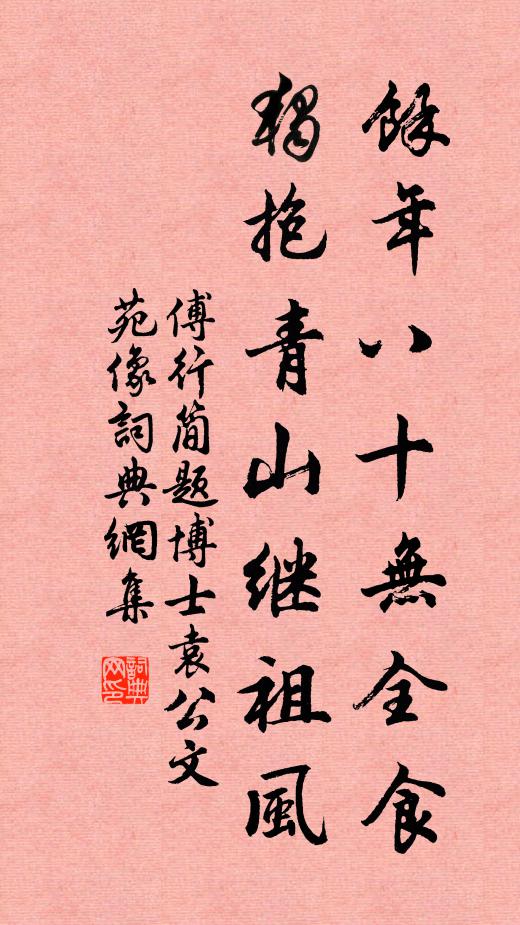 餘年八十無全食
獨抱青山继祖風
傅行简题博士袁公文
苑像詞典網集
詞典网印